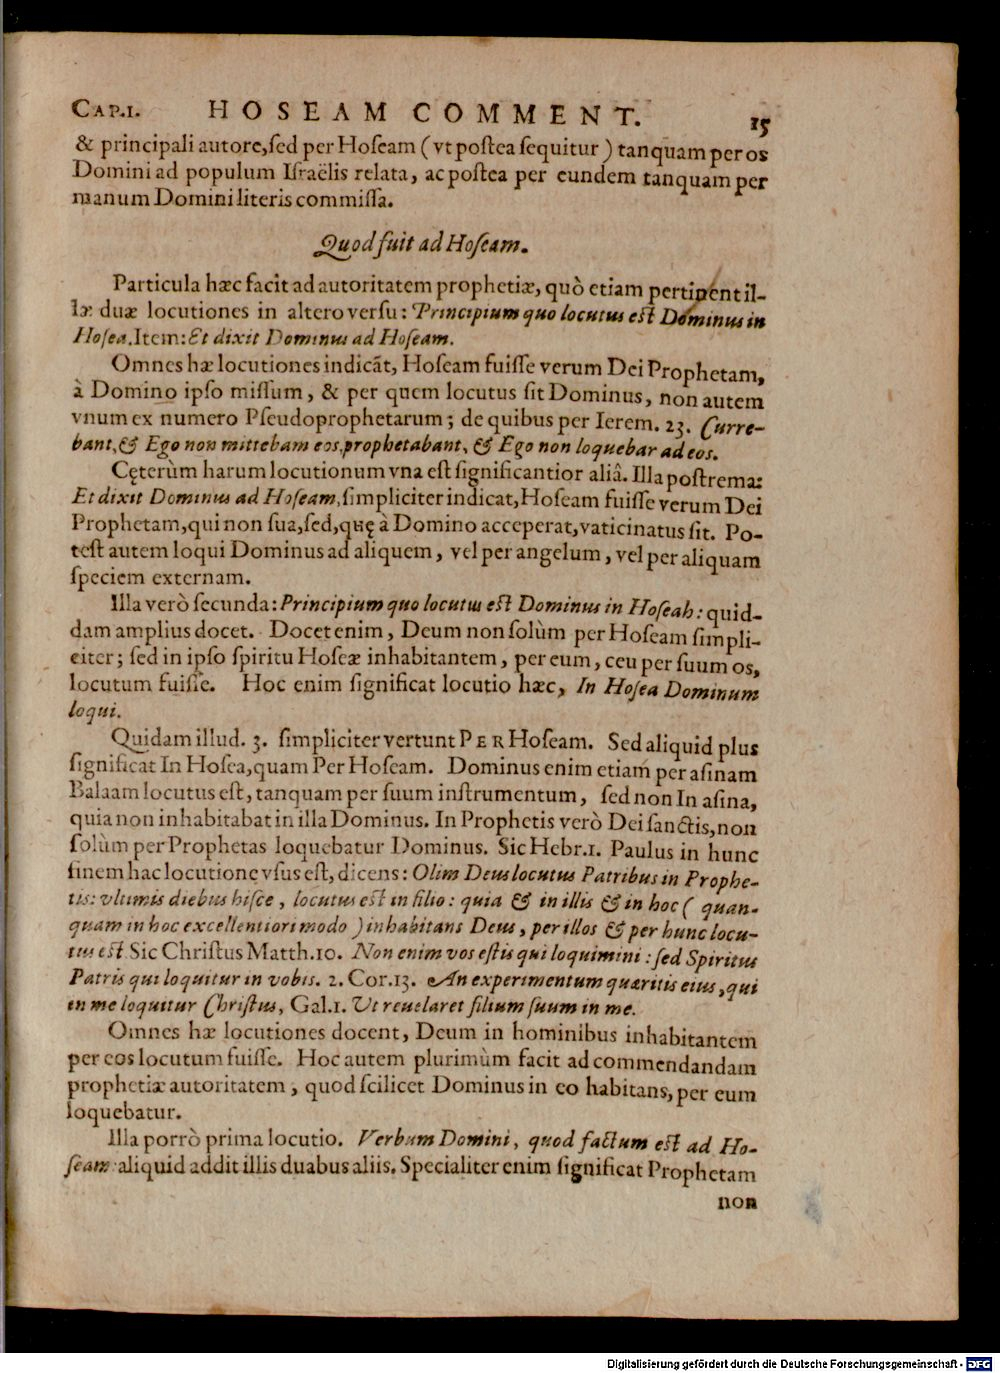 CAP.1. HOSEAM COMMENT. 15
& principali autore, ſed per Hoſeam (vt poſtea ſequitur) tanquam per os
Domini ad populum Iſraëlis relata, ac poſtea per eundem tanquam per
manum Domini literis commiſſa.
Quod fuit ad Hoſeam.
Particula hæc facit ad autoritatem prophetiæ, quò etiam pertinent il-
læ duæ locutiones in altero verſu: Principium quo locutus eſt Dominus in
Hoſea. Item: Et dixit Dominus ad Hoſeam.
Omnes hæ locutiones indicãt, Hoſeam fuiſſe verum Dei Prophetam,
à Domino ipſo miſſum, & per quem locutus ſit Dominus, non autem
vnum ex numero Pſeudoprophetarum; de quibus per Ierem. 23. Curre-
bant, & Ego non mittebam eos, prophetabant, & Ego non loquebar ad eos.
Cęterùm harum locutionum vna eſt ſignificantior aliâ. Illa poſtrema:
Et dixit Dominus ad Hoſeam, ſimpliciter indicat, Hoſeam fuiſſe verum Dei
Prophetam, qui non ſua, ſed, quę à Domino acceperat, vaticinatus ſit. Po-
teſt autem loqui Dominus ad aliquem, vel per angelum, vel per aliquam
ſpeciem externam.
Illa verò ſecunda: Principium quo locutus eſt Dominus in Hoſeah: quid-
dam amplius docet. Docet enim, Deum non ſolùm per Hoſeam ſimpli-
citer; ſed in ipſo ſpiritu Hoſeæ inhabitantem, per eum, ceu per ſuum os,
locutum fuiſſe. Hoc enim ſignificat locutio hæc, In Hoſea Dominum
loqui.
Quidam illud. 3. ſimpliciter vertunt PER Hoſeam. Sed aliquid plus
ſignificat In Hoſea, quam Per Hoſeam. Dominus enim etiam per aſinam
Balaam locutus eſt, tanquam per ſuum inſtrumentum, ſed non In aſina,
quia non inhabitabat in illa Dominus. In Prophetis verò Dei ſanctis, non
ſolùm per Prophetas loquebatur Dominus. Sic Hebr.1. Paulus in hunc
finem hac locutione vſus eſt, dicens: Olim Deus locutus Patribus in Prophe-
tis: vltimis diebus hiſce, locutus eſt in filio: quia & in illis & in hoc (quan-
quam in hoc excellentiori modo) inhabitans Deus, per illos & per hunc locu-
tus eſt Sic Chriſtus Matth.10. Non enim vos eſtis qui loquimini: ſed Spiritus
Patris qui loquitur in vobis. 2. Cor.13. An experimentum quæritis eius, qui
in me loquitur Chriſtus, Gal.1. Ut reuelaret filium ſuum in me.
Omnes hæ locutiones docent, Deum in hominibus inhabitantem
per eos locutum fuiſſe. Hoc autem plurimùm facit ad commendandam
prophetiæ autoritatem, quod ſcilicet Dominus in eo habitans, per eum
loquebatur.
Illa porrò prima locutio. Verbum Domini, quod factum eſt ad Ho-
ſeam aliquid addit illis duabus aliis. Specialiter enim ſignificat Prophetam
non
Digitalisierung gefördert durch die Deutsche Forschungsgemeinschaft - DFG